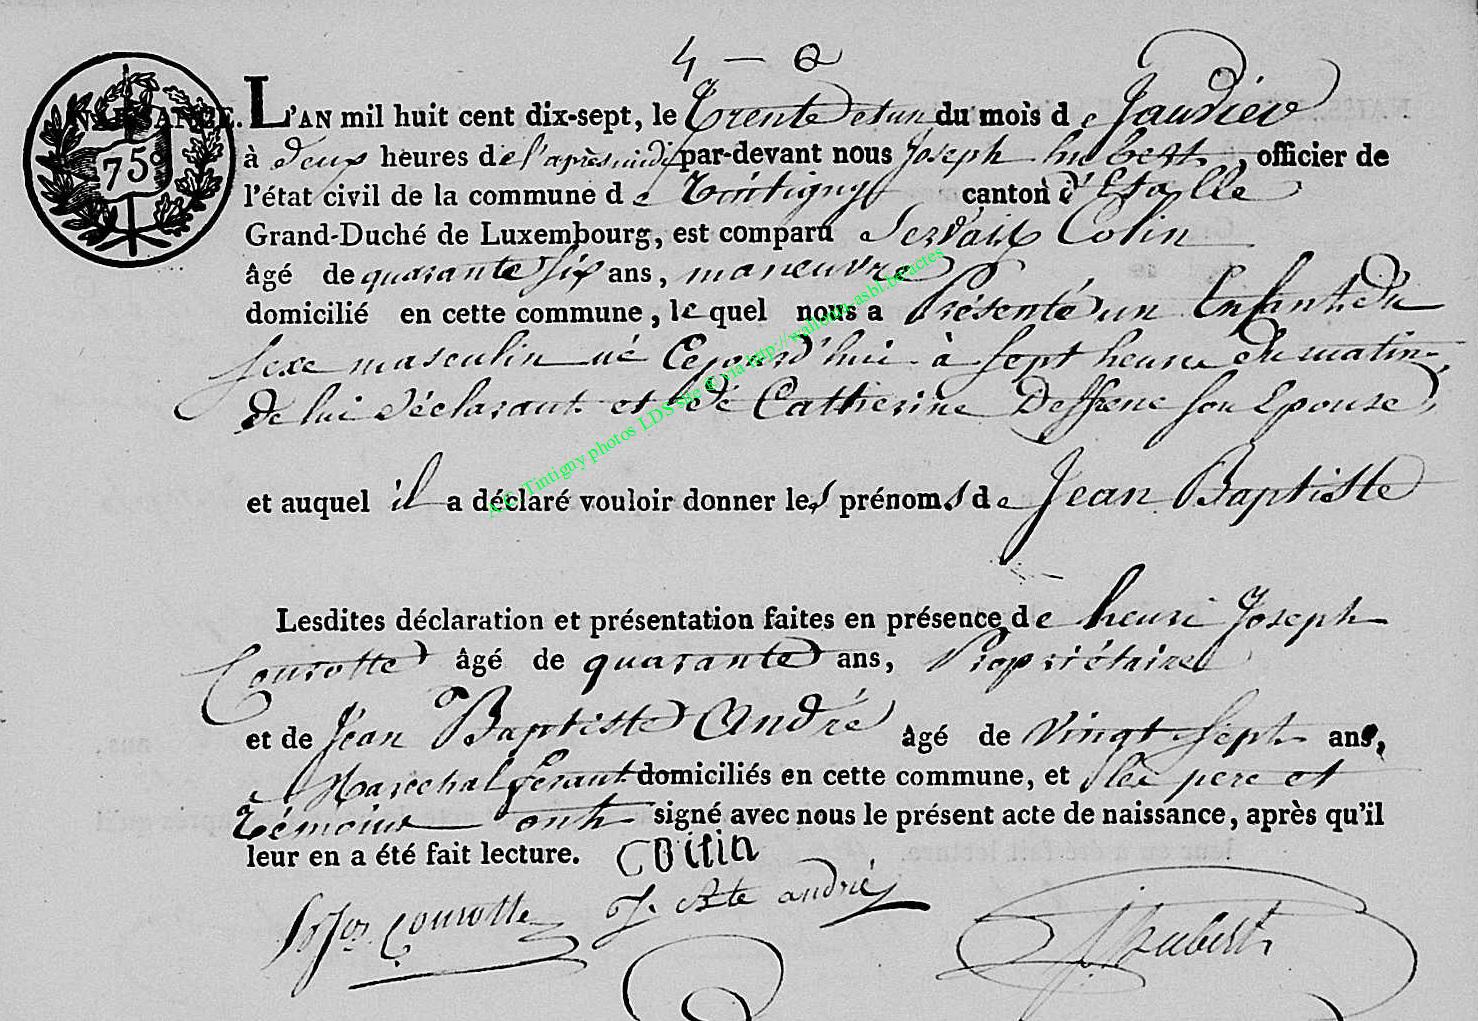 4 — @
NAISSANCE. L'AN mil huit cent dix-sept, le Trente et un du mois de Janvier
75c
à deux heures de l'après midi par-devant nous Joseph hubert, officier de
l'état civil de la commune de Tintigny canton d'Etalle
Grand-Duché de Luxembourg, est comparu Servais Colin
âgé de quarante six ans, maneuvre
domicilié en cette commune, lequel nous a Présenté un Enfant du
sexe masculin né Cejourd'hui à sept heures du matin
de lui déclarant et de Catherine Deffrene son Epouse,
et auquel il a déclaré vouloir donner les prénoms de Jean Baptiste
Lesdites déclaration et présentation faites en présence de henri Joseph
Courotte âgé de quarante ans, Propriétaire
et de Jean Baptiste André âgé de vingt sept ans,
Marechal ferant domiciliés en cette commune, et les pere et
Témoins ont signé avec nous le présent acte de naissance, après qu'il
leur en a été fait lecture. Colin
Courotte J. Bte andré J. hubert
A.E. Tintigny photos LDS site © via http://wallonia-asbl.be/actes